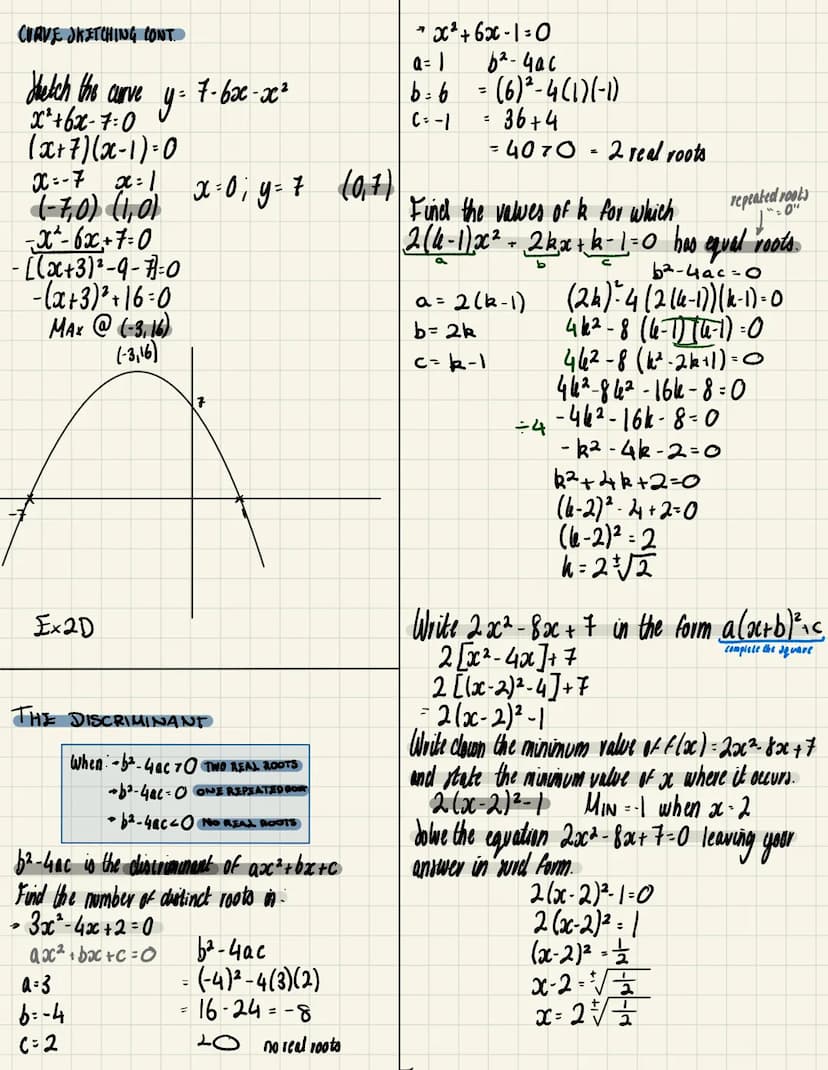 CURVE SKETCHING CONT.
Sketch the curve y = 7-6x-x²
x²+6x-7=0
(x+7)(x-1)=0
x=-7 x=1 x=0; y=7 (0,7)
(-7,0) (1,0)
-x²-6x+7=0
-[(x+3)²-9-7]=0
-(x+3)²+16=0
MAX @ (-3,16)
(-3,16)
7
-7 1
Ex2D
THE DISCRIMINANT
When: → b²-4ac > 0 TWO REAL ROOTS
→ b²-4ac = 0 ONE REPEATED ROOT
→ b²-4ac < 0 NO REAL ROOTS
b²-4ac is the discriminant of ax²+bx+c
Find the number of distinct roots in:
→ 3x²-4x+2=0
ax²+bx+c=0 b²-4ac
a=3 = (-4)²-4(3)(2)
b=-4 = 16-24 = -8
c=2 <0 no real roots
→ x²+6x-1=0
a=1 b²-4ac
b=6 = (6)²-4(1)(-1)
c=-1 = 36+4
= 40>0 = 2 real roots
Find the values of k for which
repeated roots
"=0"
2(k-1)x² + 2kx + k-1=0 has equal roots.
a b c
b²-4ac=0
a = 2(k-1) (2k)²-4(2(k-1))(k-1)=0
b = 2k 4k²-8(k-1)(k-1)=0
c = k-1 4k²-8(k²-2k+1)=0
4k²-8k²-16k-8=0
÷4 -4k²-16k-8=0
-k²-4k-2=0
k²+4k+2=0
(k-2)²-4+2=0
(k-2)²=2
k=2±√2
Write 2x²-8x+7 in the form a(x+b)²+c
complete the square
2[x²-4x]+7
2[(x-2)²-4]+7
= 2(x-2)²-1
Write down the minimum value of f(x)=2x²-8x+7
and state the minimum value of x where it occurs.
2(x-2)²-1 MIN = -1 when x=2
Solve the equation 2x²-8x+7=0 leaving your
answer in surd form.
2(x-2)²-1=0
2(x-2)²=1
(x-2)²=1/2
x-2=±√1/2
x=2±√1/2